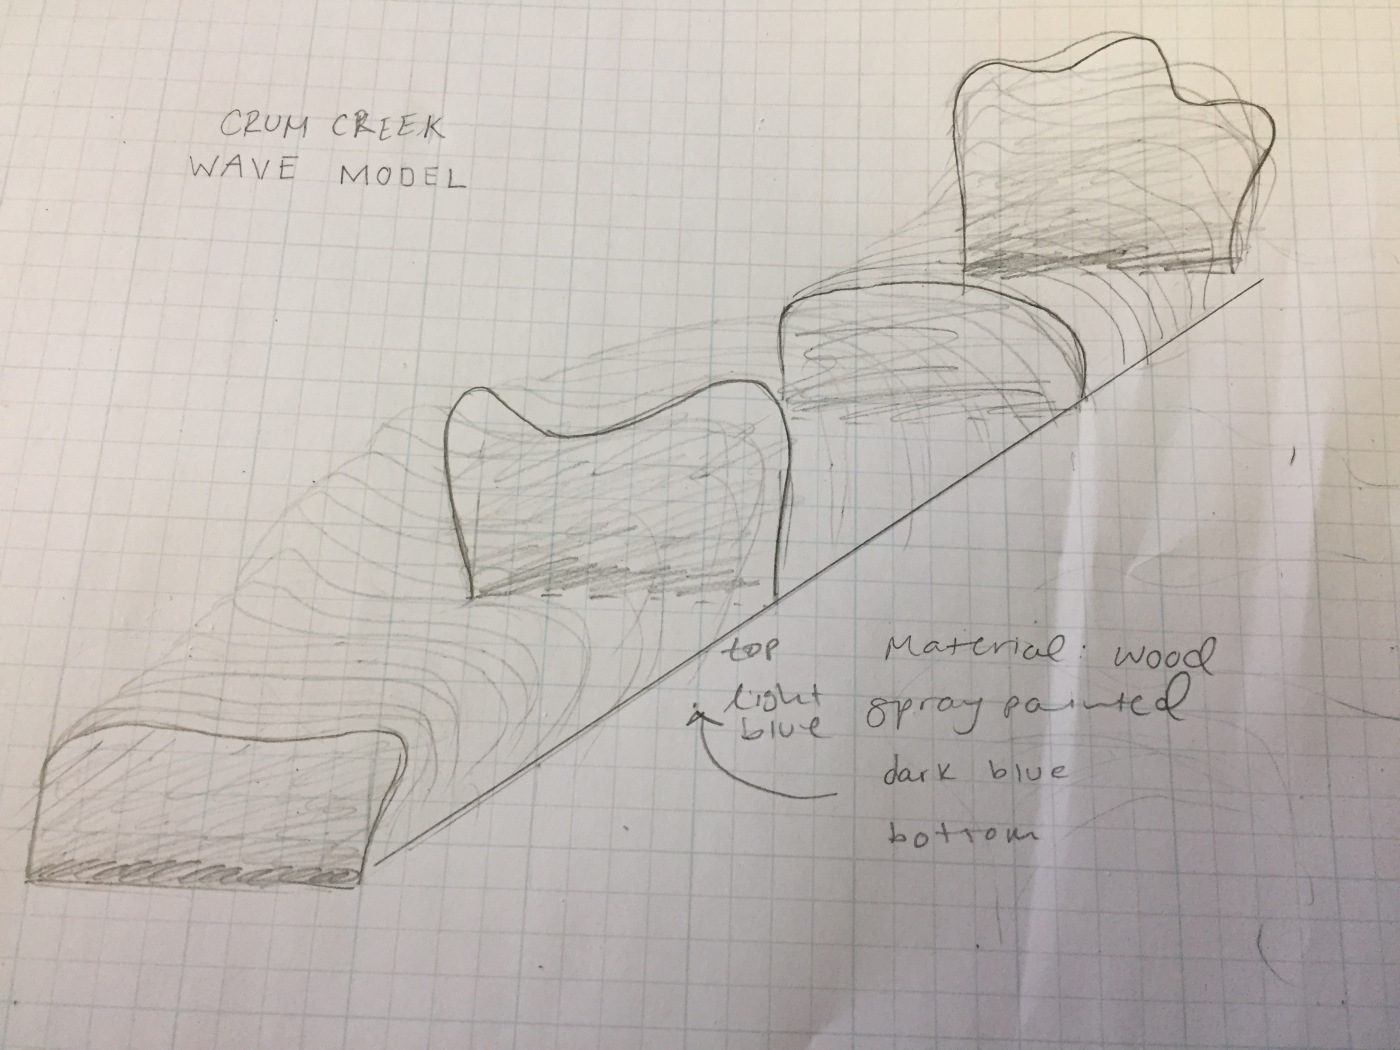 CRUM CREEK
WAVE MODEL
top
light
blue
Material: wood
spray painted
dark blue
bottom